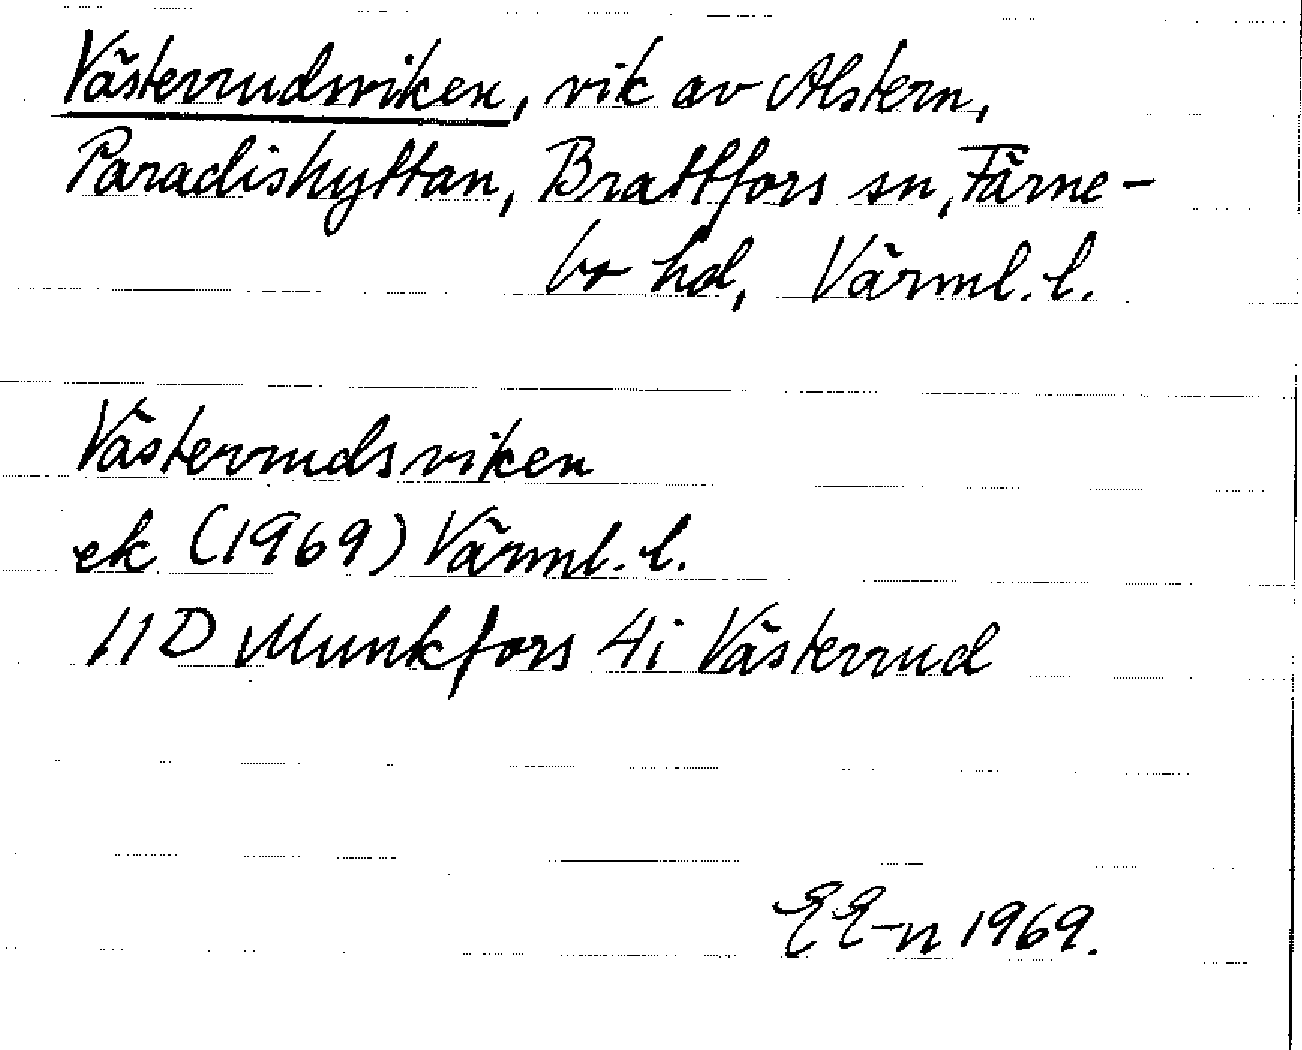 Västerrudsviken, vik av Alstern,
Paradishyttan, Brattfors sn, Färne-
bo hd, Värml. l.
Västerrudsviken
ek (1969) Värml. l.
11D Munkfors 4i Västerrud
EE-n 1969.